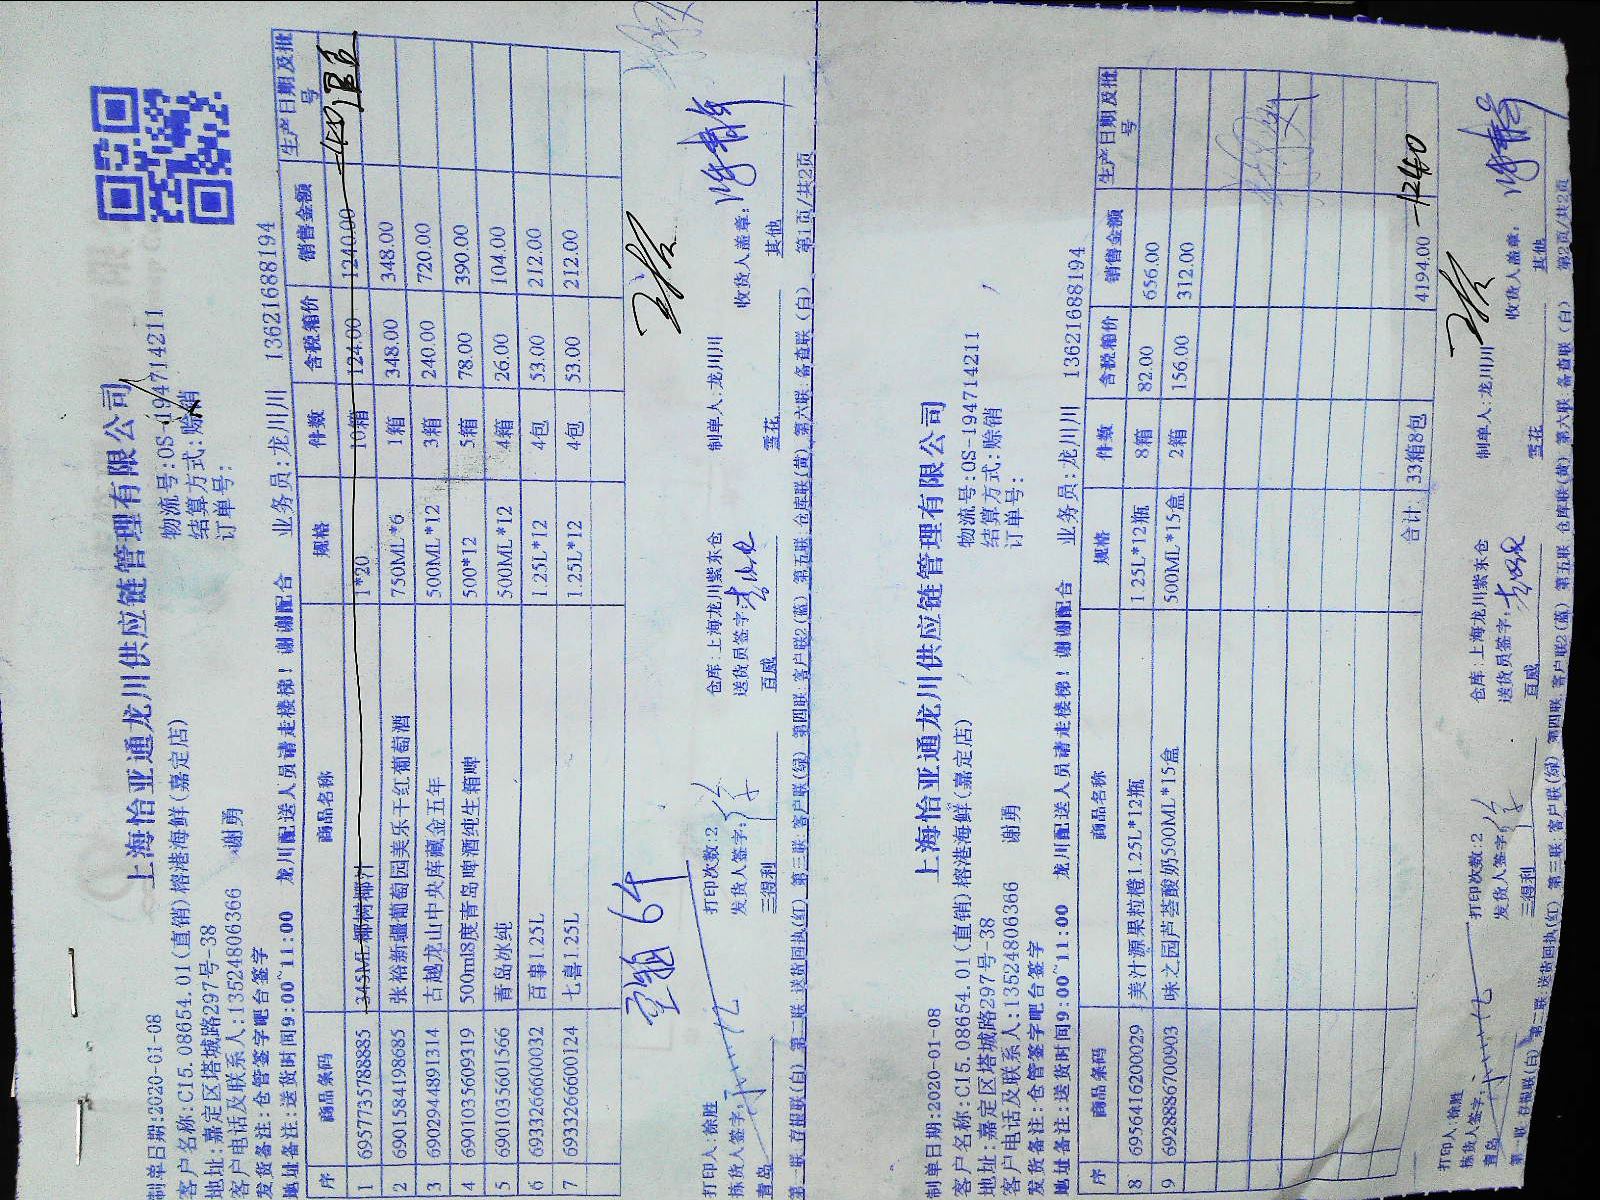 上海怡亚通龙川供应链管理有限公司
制单日期:2020-01-08 物流号:OS-1947142​11
客户名称:C15.08654.01(直销)榕港海鲜(嘉定店) 结算方式:赊销
地址:嘉定区塔城路297号-38 订单号:
客户电话及联系人:13524806366 谢勇
发货备注:仓管签字吧台签字
地址备注:送货时间9:00~11:00 龙川配送人员请走楼梯!谢谢配合 业务员:龙川川 13621688194
序 商品条码 商品名称 规格 件数 含税箱价 销售金额 生产日期及批号
1 6957735788885 345ML椰树椰汁 1*20 10箱 124.00 1240.00
2 6901584198685 张裕新疆葡萄园美乐干红葡萄酒 750ML*6 1箱 348.00 348.00
3 6902944891314 古越龙山中央库藏金五年 500ML*12 3箱 240.00 720.00
4 6901035609319 500ml8度青岛啤酒纯生箱啤 500*12 5箱 78.00 390.00
5 6901035601566 青岛冰纯 500ML*12 4箱 26.00 104.00
6 6933266600032 百事1.25L 1.25L*12 4包 53.00 212.00
7 6933266600124 七喜1.25L 1.25L*12 4包 53.00 212.00
空箱6个
打印人:徐胜 打印次数:2 仓库:上海龙川紫东仓 制单人:龙川川
拣货人签字: 发货人签字: 送货员签字: 收货人盖章:
青岛 三得利 百威 雪花 其他
第一联:存根联(白) 第二联:送货回执(红) 第三联:客户联(绿) 第四联:客户联2(蓝) 第五联:仓库联(黄) 第六联:备查联(白) 第1页/共2页
上海怡亚通龙川供应链管理有限公司
制单日期:2020-01-08 物流号:OS-1947142​11
客户名称:C15.08654.01(直销)榕港海鲜(嘉定店) 结算方式:赊销
地址:嘉定区塔城路297号-38 订单号:
客户电话及联系人:13524806366 谢勇
发货备注:仓管签字吧台签字
地址备注:送货时间9:00~11:00 龙川配送人员请走楼梯!谢谢配合 业务员:龙川川 13621688194
序 商品条码 商品名称 规格 件数 含税箱价 销售金额 生产日期及批号
8 6956416200029 美汁源果粒橙1.25L*12瓶 1.25L*12瓶 8箱 82.00 656.00
9 6928886700903 味之园芦荟酸奶500ML*15盒 500ML*15盒 2箱 156.00 312.00
合计 33箱8包 4194.00 -1240
打印人:徐胜 打印次数:2 仓库:上海龙川紫东仓 制单人:龙川川
拣货人签字: 发货人签字: 送货员签字: 收货人盖章:
青岛 三得利 百威 雪花 其他
第一联:存根联(白) 第二联:送货回执(红) 第三联:客户联(绿) 第四联:客户联2(蓝) 第五联:仓库联(黄) 第六联:备查联(白) 第2页/共2页